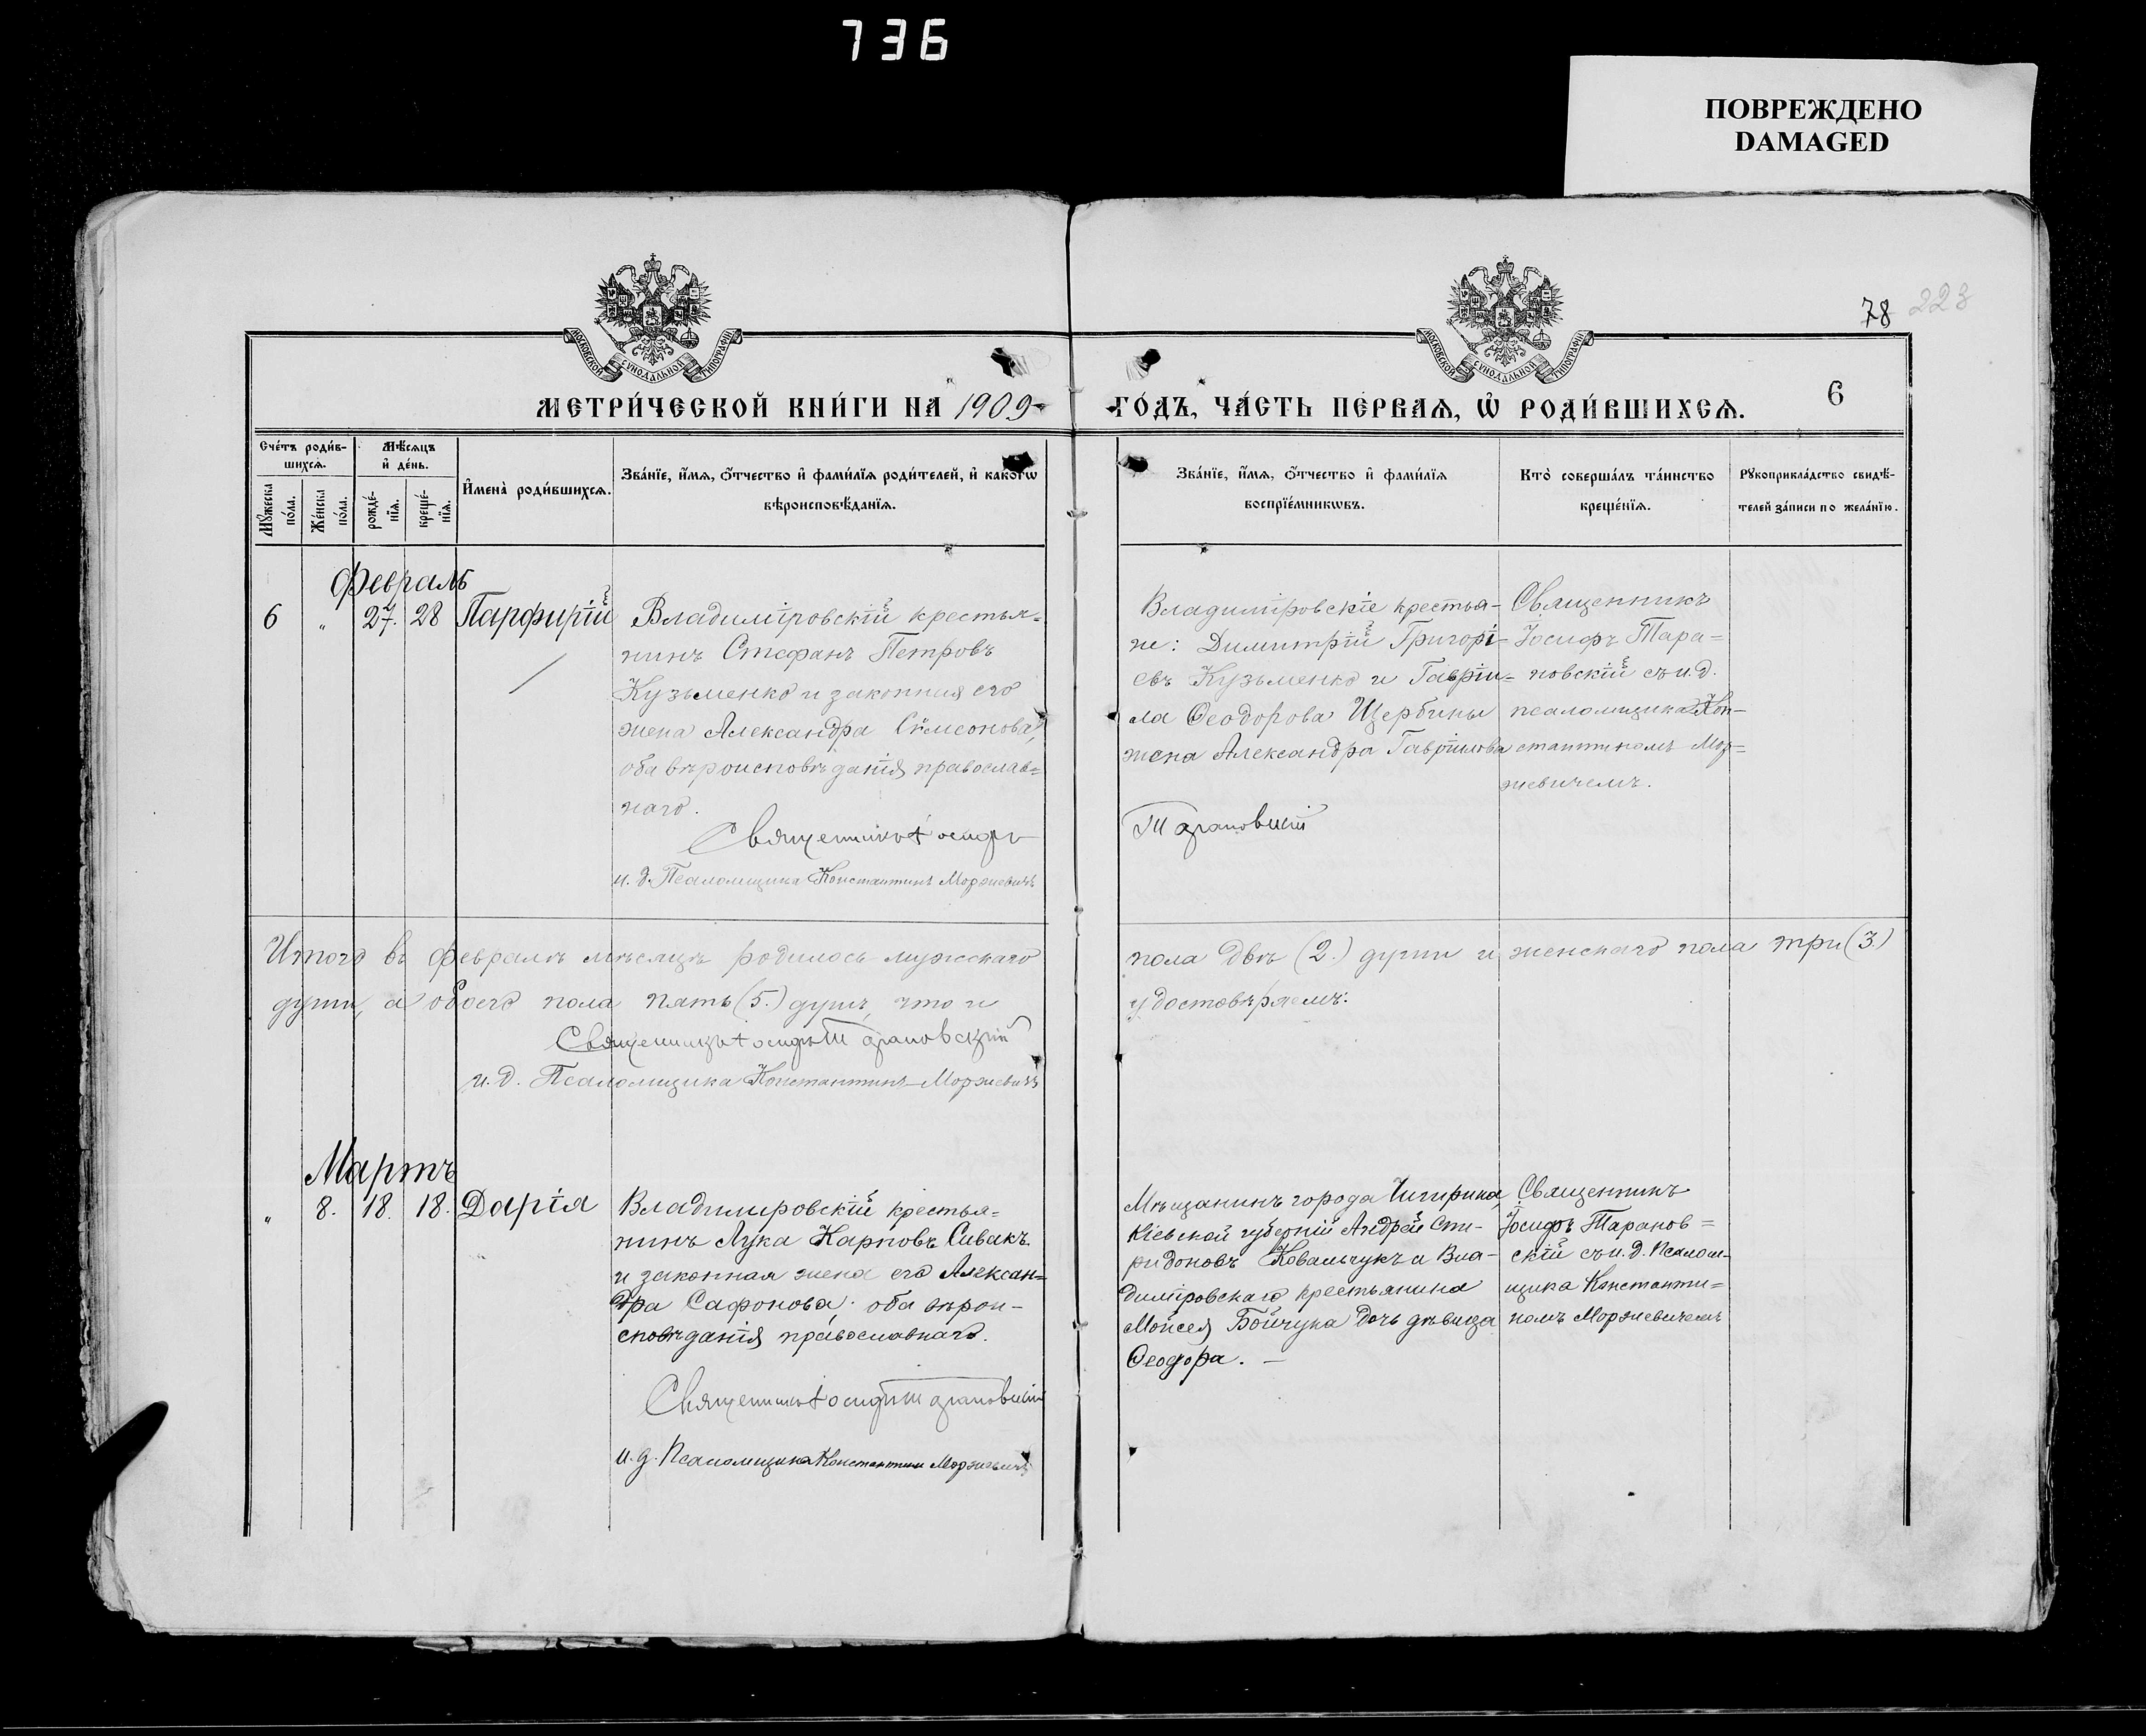 736
ПОВРЕЖДЕНО
DAMAGED
78 223
МОСКОВСКОЙ СУНОДАЛЬНОЙ ТИПОГРАФІИ
МОСКОВСКОЙ СУНОДАЛЬНОЙ ТИПОГРАФІИ
МЕТРИ́ЧЕСКОЙ КНИ́ГИ НА 1909
ГО́ДЪ, ЧА́СТЬ ПЕ́РВАѦ, Ѡ РОДИ́ВШИХСѦ.
6
Сче́тъ роди́в-
шихсѧ.
Мꙋ́жеска по́ла.
Же́нска по́ла.
Мѣ́сѧцъ
и҆ де́нь.
рожде́-
нїѧ.
креще́-
нїѧ.
И҆мена̀ роди́вшихсѧ.
Зва́нїе, и҆́мѧ, ѻ҆́тчество и҆ фами́лїѧ роди́телей, и҆ како́гѡ
вѣроисповѣ́данїѧ.
Зва́нїе, и҆́мѧ, ѻ҆́тчество и҆ фами́лїѧ
воспрїе́мникѡвъ.
Кто̀ соверша́лъ та́инство
креще́нїѧ.
Рꙋкоприкла́дство свидѣ́-
телей за́писи по жела́нїю.
Февраль
6 " 27. 28 Парфирій
Владиміровскій крестья=
нинъ Стефанъ Петровъ
Кузьменко и законная его
жена Александра Сѵмеонова,
оба вѣроисповѣданія православ=
наго.
Священникъ Іосифъ
и. д. Псаломщика Константинъ Моржевичъ
Владимировскіе крестья-
не: Димитрій Григорі-
евъ Кузьменко и Гавріи=
ла Ѳеодорова Щербины
жена Александра Гавріилова
Тарановскій
Священникъ
Іосифъ Тара=
новскій съ и. д.
псаломщика Кон-
стантиномъ Мор=
жевичемъ.
Итого въ Февралѣ мѣсяцѣ родилось мужскаго
пола двѣ (2.) души и женскаго пола три (3.)
души, а обоего пола пять (5.) душъ, что и
удостовѣряемъ:
Священникъ Іосифъ Тарановскій
и. д. Псаломщика Константинъ Моржевичъ
Мартъ
" 8. 18. 18. Дарія
Владимировскій крестья=
нинъ Лука Карповъ Сивакъ
и законная жена его Алексан=
дра Сафонова; оба вѣрои-
сповѣданія православнаго.
Священникъ Іосифъ Тарановскій
и. д. Псаломщика Константинъ Моржевичъ
Мѣщанинъ города Чигирина,
Кіевской губерніи Андрей Спи-
ридоновъ Ковальчукъ и Вла-
димировскаго крестьянина
Моисея Бойчука дочь дѣвица
Ѳеодора. —
Священникъ
Іосифъ Таранов=
скій съ и. д. Псалом-
щика Константи=
номъ Моржевичемъ